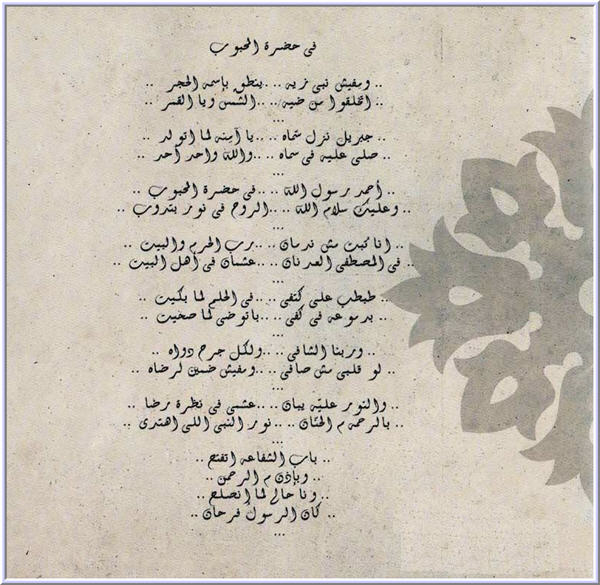 فى حضرة المحبوب
.. ومفيش نبى زيه .. .. ينطق بإسمه الحجر ..
.. اتخلقوا من ضيه .. .. الشمس ويا القمر ..
...
.. جبريل نزل سماه .. .. يا آمنه لما اتولد ..
.. صلى عليه فى سماه .. .. والله واحد أحد ..
...
.. أحمد رسول الله .. .. فى حضرة المحبوب ..
.. وعليك سلام الله .. .. الروح فى نور بتدوب ..
...
.. انا كنت مش ندمان .. .. برب الحرم والبيت ..
.. فى المصطفى العدنان .. .. عشمان فى أهل البيت ..
...
.. طبطب على كتفى .. .. فى الحلم لما بكيت ..
.. بدموعه فى كفى .. .. باتوضى لما صحيت ..
...
.. وربنا الشافى .. .. ولكل جرح دواه ..
.. لو قلبى مش صافى .. .. ومفيش ضمين لرضاه ..
...
.. والنور عليّه يبان .. .. عشمى فى نظرة رضا ..
.. بالرحمه م الحنّان .. .. نور النبى اللى اهتدى ..
...
.. باب الشفاعه اتفتح ..
.. وبإذن م الرحمن ..
.. ونا حالى لما انصلح ..
.. كان الرسول فرحان ..
...